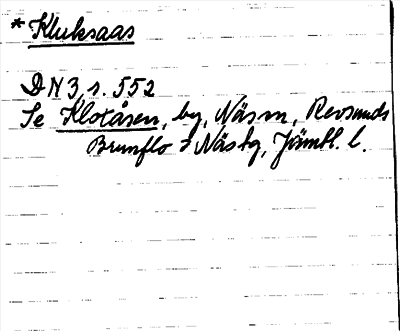 * Kluksaas
DN 3, s. 552
Se Klotåsen, by, Näs sn, Revsunds
Brunflo o Näs tg, Jämtl. l.